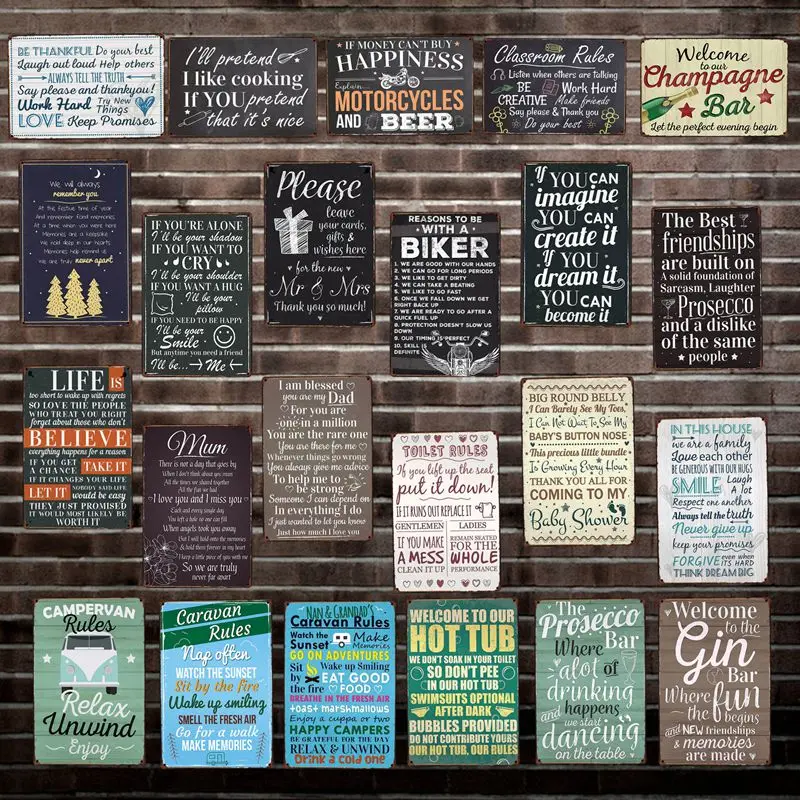 BE THANKFUL Do your best
Laugh out loud Help others
ALWAYS TELL THE TRUTH
Say please and thankyou!
Work Hard Try New Things
LOVE Keep Promises
I'll pretend
I like cooking
If YOU pretend
that it's nice
IF MONEY CAN'T BUY
HAPPINESS
Explain...
MOTORCYCLES
AND BEER
Classroom Rules
Listen when others are talking
BE CREATIVE Work Hard
Make friends
Say please & Thank you
Do your best
Welcome
to our
Champagne
Bar
Let the perfect evening begin
We will always
remember you
At the festive time of year
And remember fond memories
At a time when you were here
Memories are a keepsake
We hold deep in our hearts
Memories help remind us
We are truly never apart
IF YOU'RE ALONE
I'll be your shadow
IF YOU WANT TO
CRY
I'll be your shoulder
IF YOU WANT A HUG
I'll be your
pillow
IF YOU NEED TO BE HAPPY
I'll be your
Smile
But anytime you need a friend
I'll be... Me
Please
leave
your cards,
gifts &
wishes here
for the new
Mr & Mrs
Thank you so much!
REASONS TO BE
WITH A
BIKER
1. WE ARE GOOD WITH OUR HANDS
2. WE CAN GO FOR LONG PERIODS
3. WE LIKE TO GET DIRTY
4. WE CAN TAKE A BEATING
5. WE LIKE TO GO FAST
6. ONCE WE FALL DOWN WE GET
RIGHT BACK UP
7. WE ARE READY TO GO AFTER A
QUICK FUEL UP
8. PROTECTION DOESN'T SLOW US
DOWN
9. OUR TIMING IS PERFECT
10. SKILL IS
DEFINITE
If YOU CAN
imagine
YOU CAN
create it
If YOU
dream it
YOU CAN
become it
The Best
friendships
are built on
A solid foundation of
Sarcasm, Laughter
Prosecco
and a dislike
of the same
people
LIFE IS
too short to wake up with regrets
SO LOVE THE PEOPLE
WHO TREAT YOU RIGHT
forget about those who don't
BELIEVE
everything happens for a reason
IF YOU GET
A CHANCE TAKE IT
IF IT CHANGES YOUR LIFE
LET IT NOBODY SAID LIFE
would be easy
THEY JUST PROMISED
IT WOULD MOST LIKELY BE
WORTH IT
Mum
There is not a day that goes by
When I don't think about you mum
All the times we shared together
All the fun we had
I love you and I miss you
Each and every single day
You left a hole no one can fill
When angels took you away
But I will hold onto the memories
& hold them forever in my heart
I keep a little piece of you with me
So we are truly
never far apart
I am blessed
you are my Dad
For you are
one in a million
You are the rare one
You are there for me
Whenever things go wrong
You always give me advice
To help me to
be strong
Someone I can depend on
In everything I do
I just wanted to let you know
Just how much I love you
TOILET RULES
If you lift up the seat
put it down!
IF IT RUNS OUT REPLACE IT
GENTLEMEN LADIES
IF YOU MAKE
A MESS
CLEAN IT UP
REMAIN SEATED
FOR THE
WHOLE
PERFORMANCE
BIG ROUND BELLY
I Can Barely See My Toes,
I Can Not Wait To See My
BABY'S BUTTON NOSE
This precious little bundle
Is Growing Every Hour
THANK YOU ALL FOR
COMING TO MY
Baby Shower
IN THIS HOUSE
we are a family
Love each other
BE GENEROUS WITH OUR HUGS
SMILE Laugh A lot
Respect one another
Always tell the truth
Never give up
keep your promises
FORGIVE even when IT'S HARD
THINK DREAM BIG
CAMPERVAN
Rules
Relax
Unwind
Enjoy
Caravan
Rules
Nap often
WATCH THE SUNSET
Sit by the fire
Wake up smiling
SMELL THE FRESH AIR
Go for a walk
MAKE MEMORIES
NAN & GRANDAD'S
Caravan Rules
Watch the Sunset Make Memories
GO ON ADVENTURES
Sit by the fire Wake up smiling
EAT GOOD
FOOD
BREATHE IN THE FRESH AIR
toast marshmallows
Enjoy a cuppa or two
HAPPY CAMPERS
BE GRATEFUL FOR THE DAY
RELAX & UNWIND
Drink a cold one
WELCOME TO OUR
HOT TUB
WE DON'T SOAK IN YOUR TOILET
SO DON'T PEE
IN OUR HOT TUB
SWIMSUITS OPTIONAL
AFTER DARK
BUBBLES PROVIDED
DO NOT CONTRIBUTE YOURS
OUR HOT TUB, OUR RULES
The
Prosecco
Bar
Where
alot of
drinking
and happens
we start
dancing
on the table
Welcome
to the
Gin
Bar
Where
the fun
begins
and NEW friendships
& memories
are made